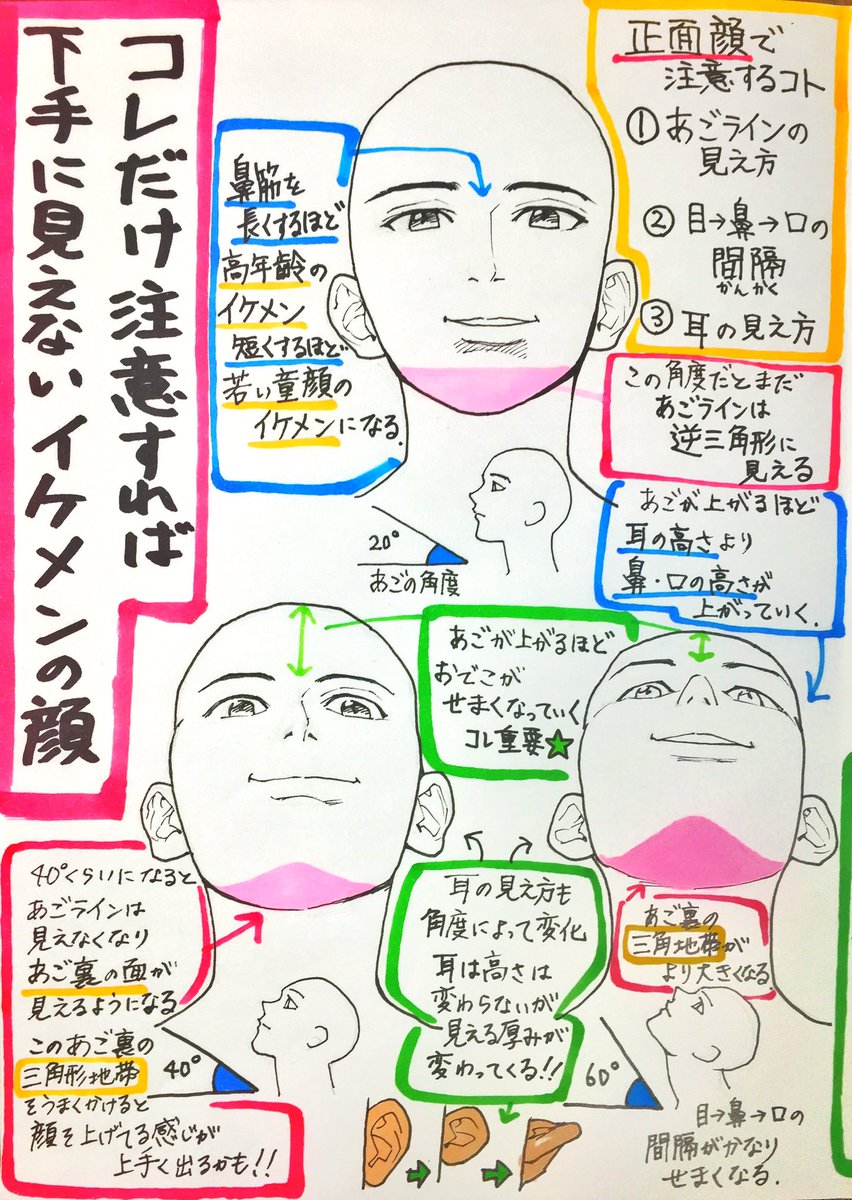 コレだけ注意すれば
下手に見えないイケメンの顔
正面顔で
注意するコト
①あごラインの
見え方
②目→鼻→口の
間隔
かんかく
③耳の見え方
鼻筋を
長くするほど
高年齢の
イケメン
短くするほど
若い童顔の
イケメンになる.
この角度だとまだ
あごラインは
逆三角形に
見える
20°
あごの角度
あごが上がるほど
耳の高さより
鼻・口の高さが
上がっていく.
あごが上がるほど
おでこが
せまくなっていく
コレ重要★
40°くらいになると
あごラインは
見えなくなり
あご裏の面が
見えるようになる
このあご裏の
三角形地帯
をうまくかけると
顔を上げてる感じが
上手く出るかも!!
40°
耳の見え方も
角度によって変化
耳は高さは
変わらないが
見える厚みが
変わってくる!!
あご裏の
三角地帯が
より大きくなる.
60°
目→鼻→口の
間隔がかなり
せまくなる.